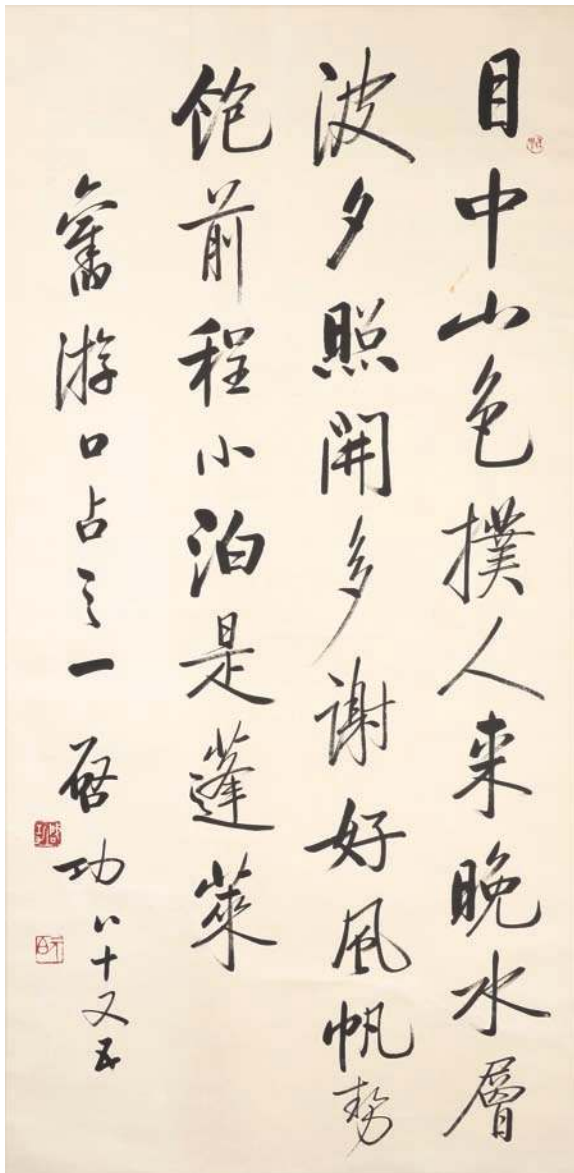 目中山色撲人来晚水層
波夕照開多謝好風帆勢
飽前程小泊是蓬萊
舊游口占之一 啓功八十又五
啓功